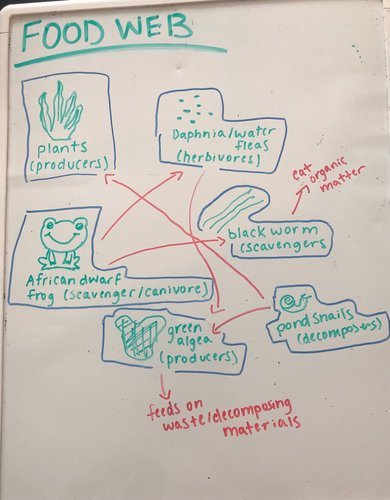 FOOD WEB
plants
(producers)
Daphnia/water
fleas
(herbivores)
eat
organic
matter
black worm
(scavengers
African dwarf
frog (scavenger/canivore)
green
algea
(producers)
pond snails
(decomposers)
feeds on
waste/decomposing
materials